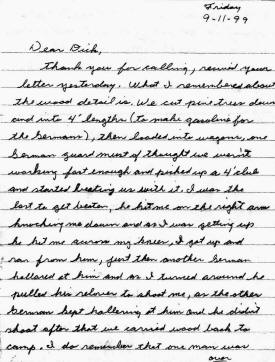 Friday
9-11-99
Dear Dick,
Thank you for calling, received your
letter yesterday. What I remembered about
the wood detail is. We cut pine trees down
and into 4' lengths (to make gasoline for
the Germans), then loaded into wagons, one
German guard must of thought we weren't
working fast enough and picked up a 4' club
and started beating us with it. I was the
last to get beaten, he hit me on the right arm
knocking me down and as I was getting up
he hit me across my knees, I got up and
ran from him, just then another German
hollered at him and as I turned around he
pulled his relover to shoot me, as the other
German kept hollering at him and he didn't
shoot after that we carried wood back to
camp. I do remember that one man was
over